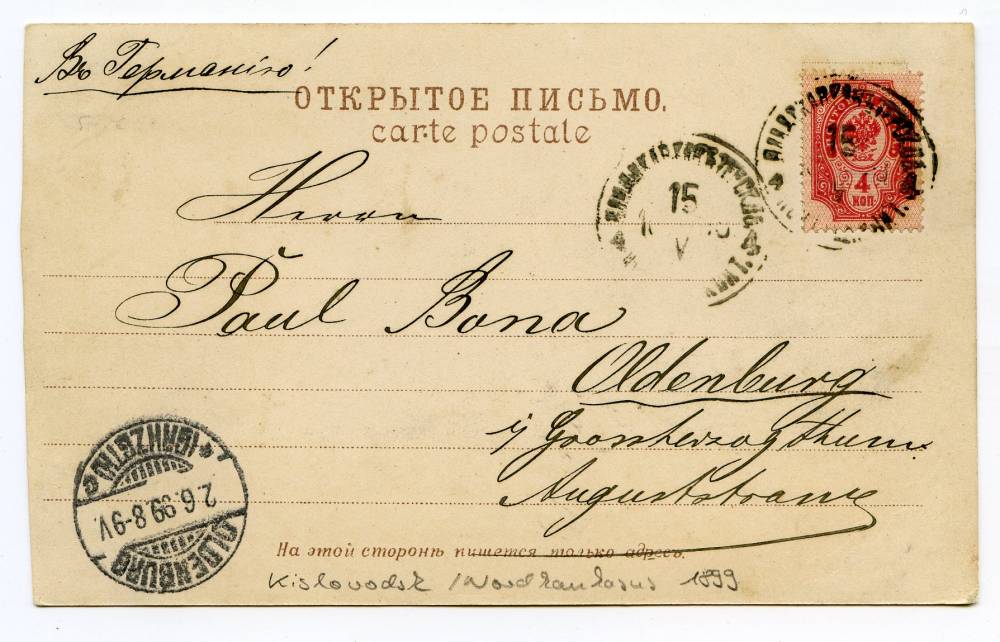 Въ Германію!
ОТКРЫТОЕ ПИСЬМО.
carte postale
4
КОП.
15
15
V
Herrn
Paul Bona
Oldenburg
i/ Grossherzogthum.
Auguststrasse
2.6.99 8-9V.
OLDENBURG
На этой сторонѣ пишется только адресъ.
Kislovodsk /Nordkaukasus 1899